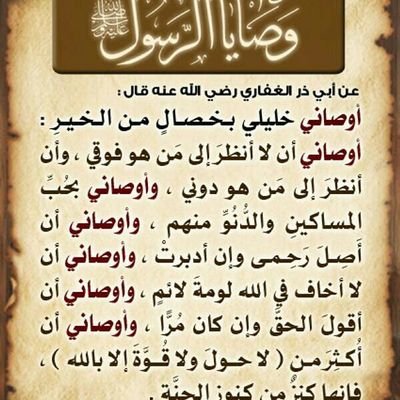 وصايا الرَّسُول ﷺ
عن أبي ذر الغفاري رضي الله عنه قال :
أوصاني خليلي بخصالٍ من الخيرِ :
أوصاني أن لا أنظرَ إلى مَن هو فوقي ، وأن
أنظرَ إلى مَن هو دوني ، وأوصاني بحُبِّ
المساكينِ والدُّنُوِّ منهم ، وأوصاني أن
أَصِلَ رَحِمى وإن أدبرتْ ، وأوصاني أن
لا أخاف في الله لومةَ لائمٍ ، وأوصاني أن
أقولَ الحقَّ وإن كان مُرًّا ، وأوصاني أن
أُكثِرَ من ( لا حولَ ولا قُوَّةَ إلا بالله ) ،
فإنها كنزٌ من كنوزِ الجنَّةِ .